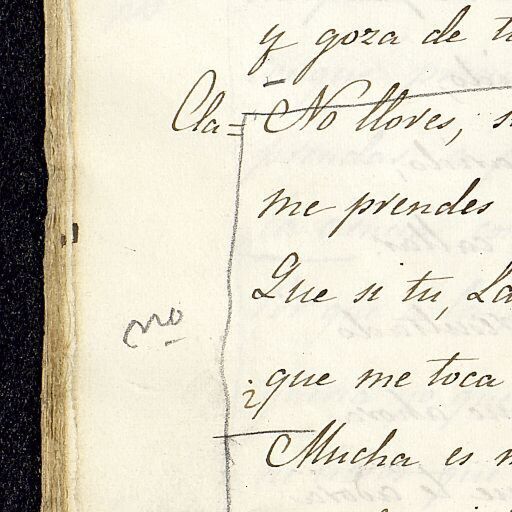 y goza de
Cla= No llores,
me prendes
Que si tu,
no
¿que me toca
Mucha es